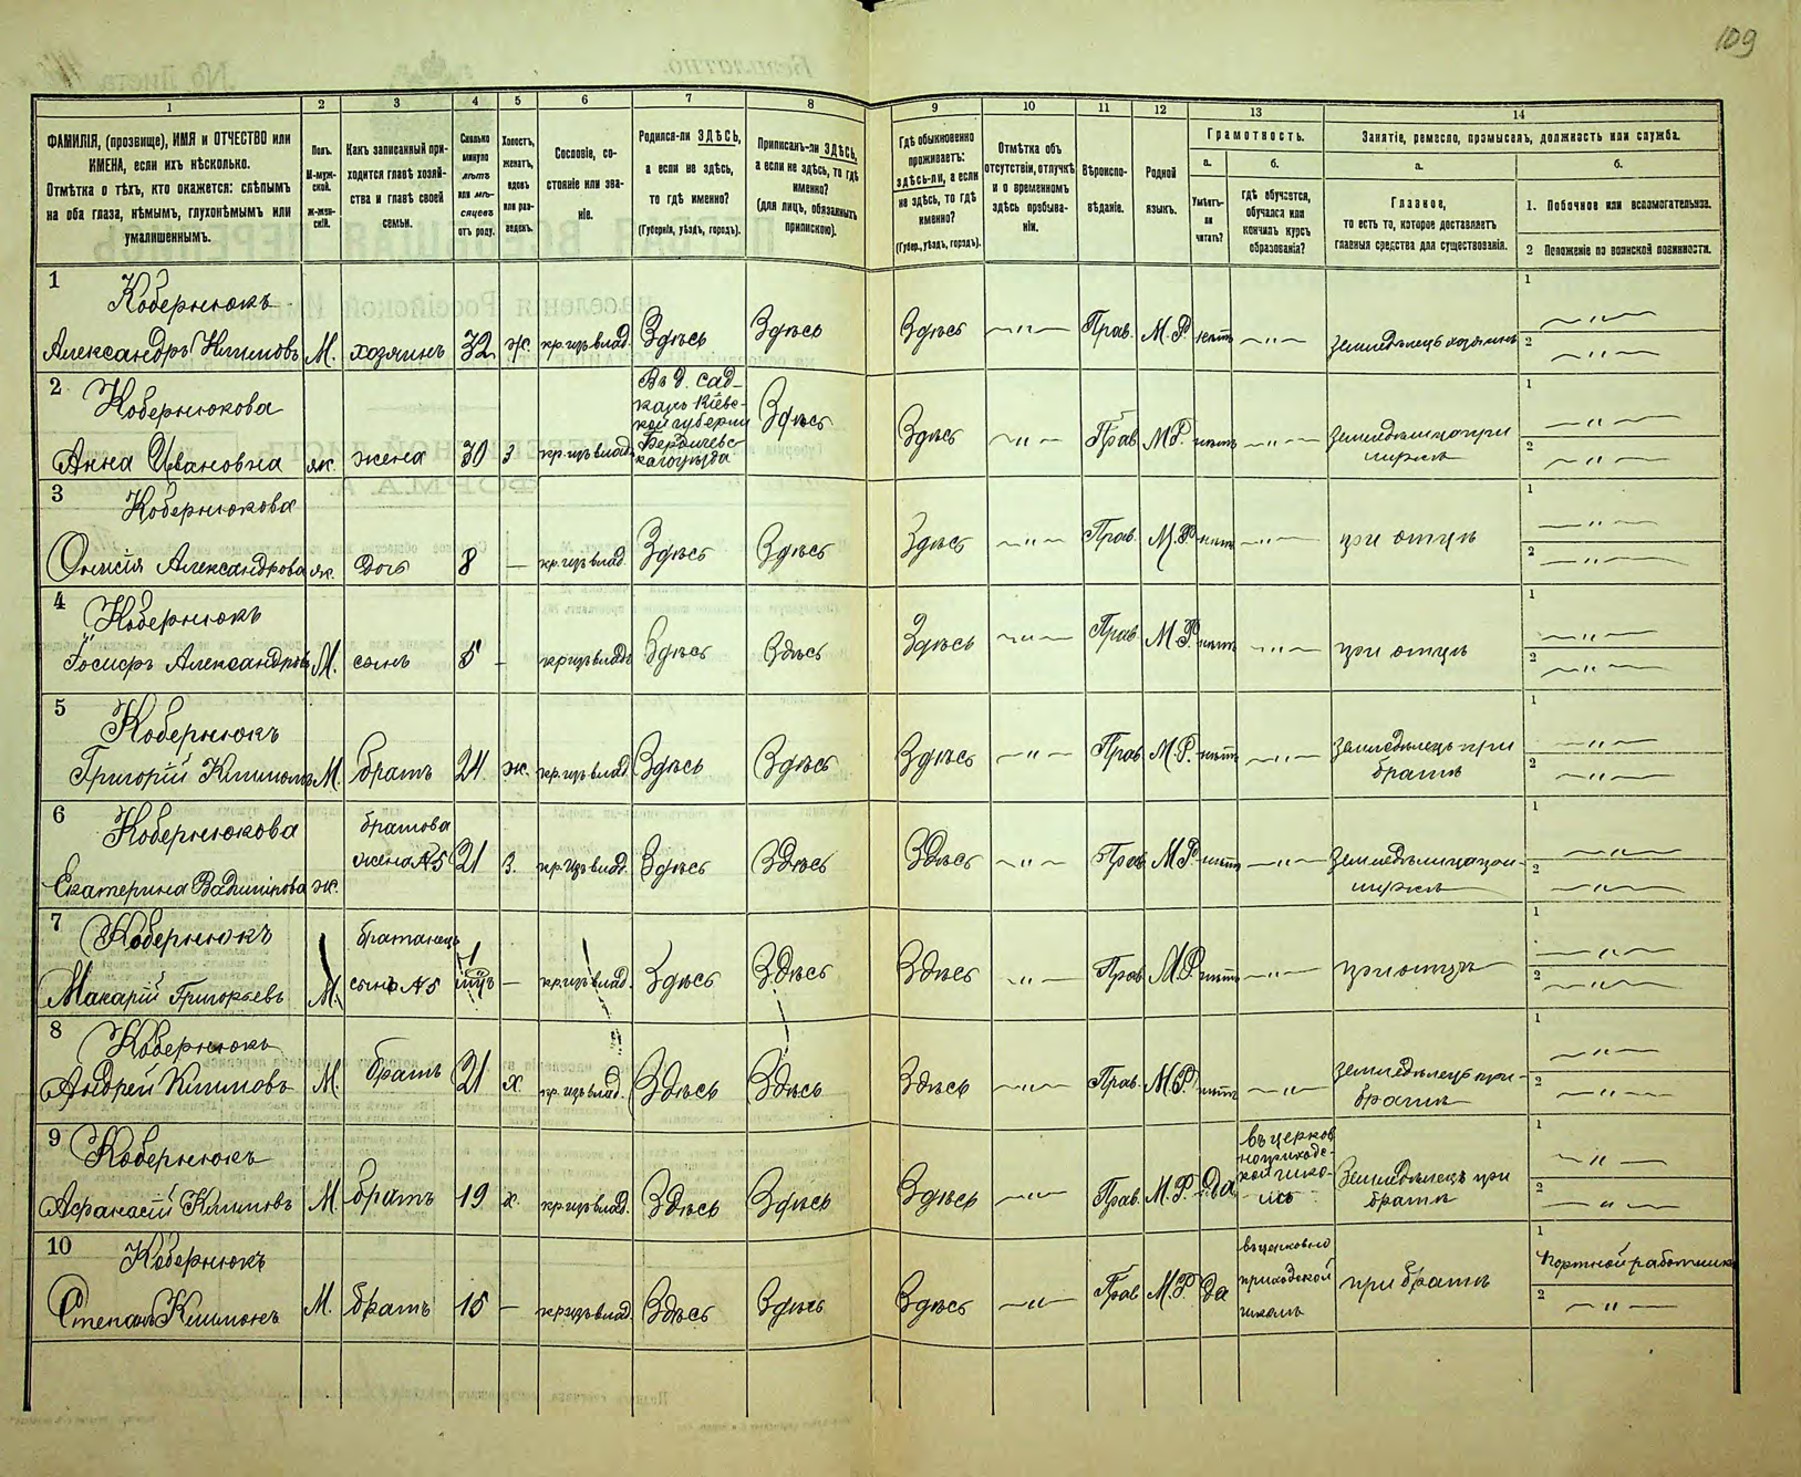 109
1 2 3 4 5 6 7 8 9 10 11 12 13 14
ФАМИЛІЯ, (прозвище), ИМЯ и ОТЧЕСТВО или
ИМЕНА, если ихъ нѣсколько.
Отмѣтка о тѣхъ, кто окажется: слѣпымъ
на оба глаза, нѣмымъ, глухонѣмымъ или
умалишеннымъ.
Полъ.
М-муж-
ской.
Ж-жен-
скій.
Какъ записанный при-
ходится главѣ хозяй-
ства и главѣ своей
семьи.
Сколько
минуло
лѣтъ
или мѣ-
сяцевъ
отъ роду.
Холостъ,
женатъ,
вдовъ
или раз-
веденъ.
Сословіе, со-
стояніе или зва-
ніе.
Родился-ли ЗДѢСЬ,
а если не здѣсь,
то гдѣ именно?
(Губернія, уѣздъ, городъ).
Приписанъ-ли ЗДѢСЬ,
а если не здѣсь, то гдѣ
именно?
(для лицъ, обязанныхъ
припискою).
Гдѣ обыкновенно
проживаетъ:
здѣсь-ли, а если
не здѣсь, то гдѣ
именно?
(Губер., уѣздъ, городъ).
Отмѣтка объ
отсутствіи, отлучкѣ
и о временномъ
здѣсь пребыва-
ніи.
Вѣроиспо-
вѣданіе.
Родной
языкъ.
Грамотность.
а.
Умѣетъ-
ли
читать?
б.
Гдѣ обучается,
обучался или
кончилъ курсъ
образованія?
Занятіе, ремесло, промыселъ, должность или служба.
а.
Главное,
то есть то, которое доставляетъ
главныя средства для существованія.
б.
1. Побочное или вспомогательное.
2 Положеніе по воинской повинности.
1 Кобернюкъ
Александръ Климовъ М. хозяинъ 32 ж. кр. изъ влад. Здѣсь Здѣсь Здѣсь —"— Прав. М. Р. нѣтъ —"— Земледѣлецъ хозяинъ 1 —"— 2 —"—
2 Кобернюкова
Анна Ивановна ж. жена 30 З кр. изъ влад.
Въ д. Сад-
кахъ Кіевс-
кой губерніи
Бердичевс-
каго уѣзда
Здѣсь Здѣсь —"— Прав М Р. нѣтъ —"— Земледѣлица при
мужѣ
1 —"— 2 —"—
3 Кобернюкова
Онисія Александрова ж. дочь 8 — кр. изъ влад. Здѣсь Здѣсь Здѣсь —"— Прав. М. Р. нѣтъ —"— при отцѣ 1 —"— 2 —"—
4 Кобернюкъ
Іосифъ Александровъ М. сынъ 5 - кр изъ влад Здѣсь Здѣсь Здѣсь —"— Прав М Р. нѣтъ —"— при отцѣ 1 —"— 2 —"—
5 Кобернюкъ
Григорій Климовъ М. братъ 24 ж. кр. изъ влад Здѣсь Здѣсь Здѣсь —"— Прав М. Р. нѣтъ —"— Земледѣлецъ при
братѣ
1 —"— 2 —"—
6 Кобернюкова
Екатерина Вадимірова ж.
братова
жена № 5
21 З. кр. изъ влад. Здѣсь Здѣсь Здѣсь —"— Прав М Р. нѣтъ —"— Земледѣлица при
мужѣ
1 —"— 2 —"—
7 Кобернюкъ
Макарій Григорьевъ М.
братанецъ
сынъ № 5
1
— кр. изъ влад. Здѣсь Здѣсь Здѣсь —"— Прав М. Р нѣтъ —"— при отцѣ 1 —"— 2 —"—
8 Кобернюкъ
Андрей Климовъ М. братъ 21 х. кр. изъ влад. Здѣсь Здѣсь Здѣсь —"— Прав. М Р. нѣтъ —"— Земледѣлецъ при
братѣ
1 —"— 2 —"—
9 Кобернюкъ
Афанасій Климовъ М. братъ 19 х. кр. изъ влад. Здѣсь Здѣсь Здѣсь —"— Прав. М. Р. да
въ церков
ноприходс-
кой шко-
лѣ
Земледѣлецъ при
братѣ
1 —"— 2 —"—
10 Кобернюкъ
Степанъ Климовъ М. братъ 15 — кр изъ влад. Здѣсь Здѣсь Здѣсь —"— Прав М. Р. да
въ церковно
приходской
школѣ
при братѣ
1 Портной работникъ
2 —"—